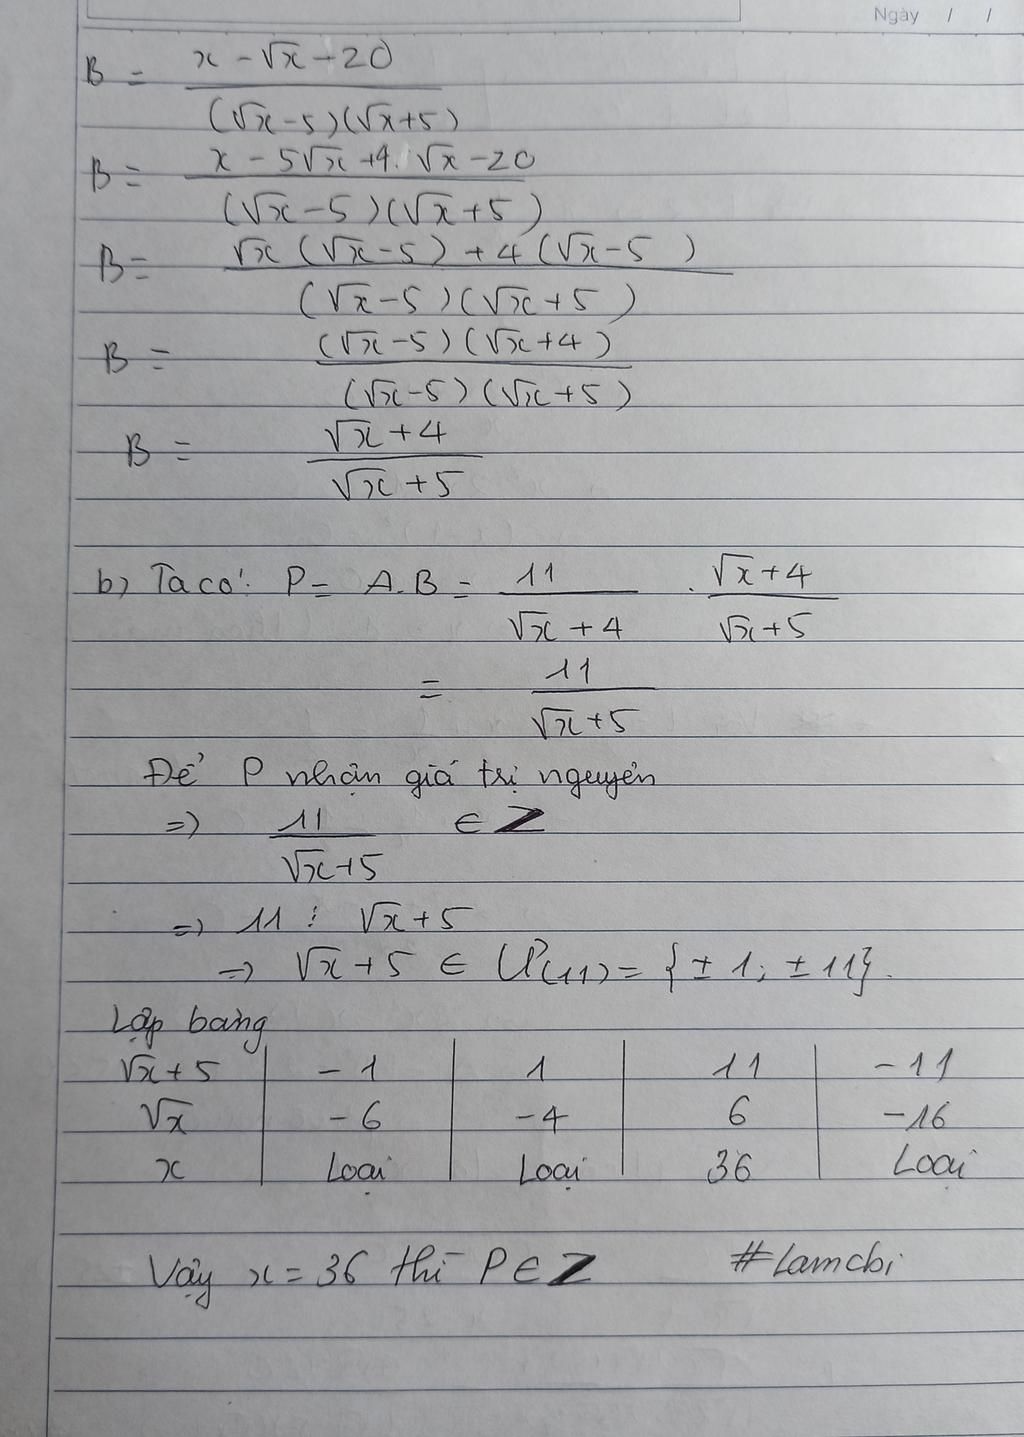 Ngày / /
B = x - √x - 20 / (√x-5)(√x+5)
B = x - 5√x + 4.√x - 20 / (√x-5)(√x+5)
B = √x (√x-5) + 4 (√x-5) / (√x-5)(√x+5)
B = (√x-5)(√x+4) / (√x-5)(√x+5)
B = √x+4 / √x+5
b) Ta có: P = A.B = 11 / √x+4 . √x+4 / √x+5
= 11 / √x+5
Để P nhận giá trị nguyên
=> 11 / √x+5 ∈ Z
=> 11 ⋮ √x+5
=> √x+5 ∈ Ư(11) = {±1; ±11}.
Lập bảng
√x+5 | -1 | 1 | 11 | -11
√x | -6 | -4 | 6 | -16
x | Loại | Loại | 36 | Loại
Vậy x = 36 thì P ∈ Z #Lamchi